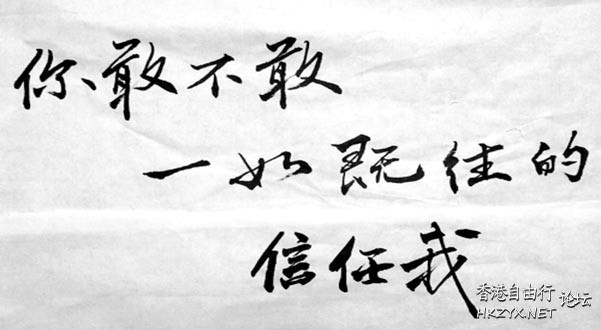 你敢不敢
一如既往的
信任我
香港自由行 论坛
HKZYX.NET